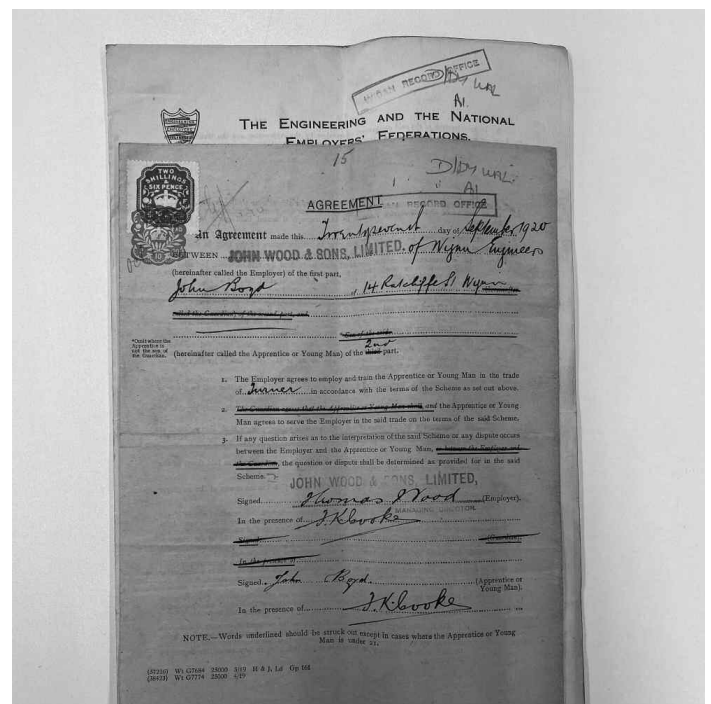 WIGAN RECORD OFFICE
D/DY WAL
A1.
THE ENGINEERING AND THE NATIONAL
EMPLOYERS' FEDERATIONS.
15
D/DY WAL.
A1
TWO
SHILLINGS
&
SIX PENCE
AGREEMENT
RECORD OFFICE
An Agreement made this Twentyseventh day of September 1920
BETWEEN JOHN WOOD & SONS, LIMITED. of Wigan Engineers
(hereinafter called the Employer) of the first part,
John Boyd, 14 Ratcliffe St Wigan
called the Guardian) of the second part, and
Son of the said
*Omit where the
Apprentice is
not the son of
the Guardian.
2nd
(hereinafter called the Apprentice or Young Man) of the third part.
1. The Employer agrees to employ and train the Apprentice or Young Man in the trade
of Turner in accordance with the terms of the Scheme as set out above.
2. The Guardian agrees that the Apprentice or Young Man shall and the Apprentice or Young
Man agrees to serve the Employer in the said trade on the terms of the said Scheme.
3. If any question arises as to the interpretation of the said Scheme or any dispute occurs
between the Employer and the Apprentice or Young Man, or between the Employer and
the Guardian, the question or dispute shall be determined as provided for in the said
Scheme.
JOHN WOOD & SONS, LIMITED,
Signed Thomas Wood (Employer).
MANAGING DIRECTOR.
In the presence of J. K. Cooke
Signed (Guardian).
In the presence of
Signed John Boyd. (Apprentice or
Young Man).
In the presence of J. K. Cooke
NOTE.—Words underlined should be struck out except in cases where the Apprentice or Young
Man is under 21.
(37210) Wt G7684 25000 3/19 H & J, Ld Gp 168
(38423) Wt G7774 25000 4/19